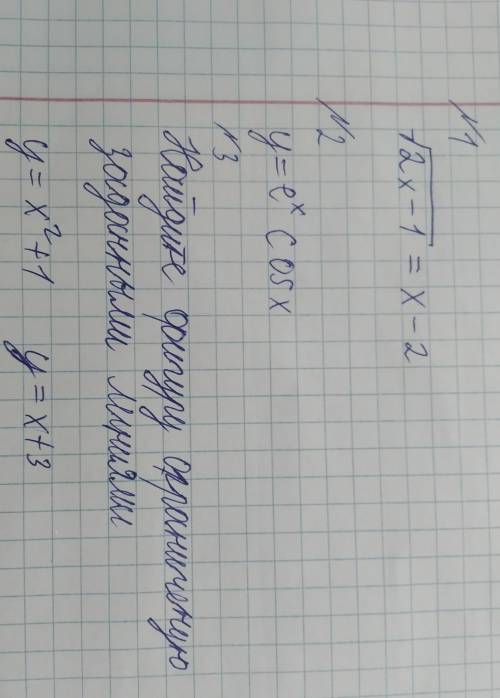 №1
√2x-1 = x-2
№2
y = eˣ cosx
№3
Найдите фигуру ограниченую
заданными линиями
y = x²+1 y = x+3